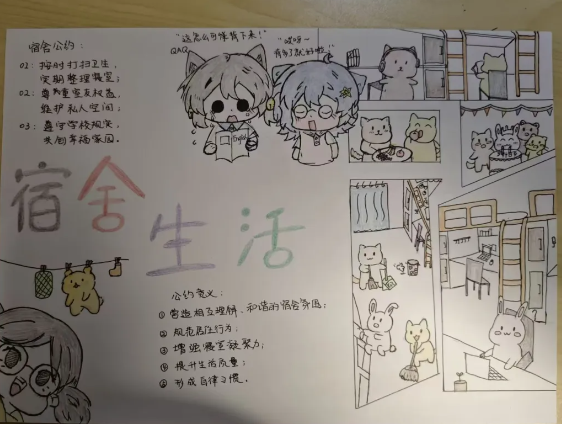 宿舍公约：
01：按时打扫卫生，
定期整理寝室；
02：尊重室友权益，
维护私人空间；
03：遵守学校规定，
共创幸福家园。
QAQ
宿舍
生活
公约意义：
① 营造相互理解、和谐的宿舍氛围；
② 规范居住行为；
③ 增强寝室凝聚力；
④ 提升生活质量；
⑤ 形成自律习惯。